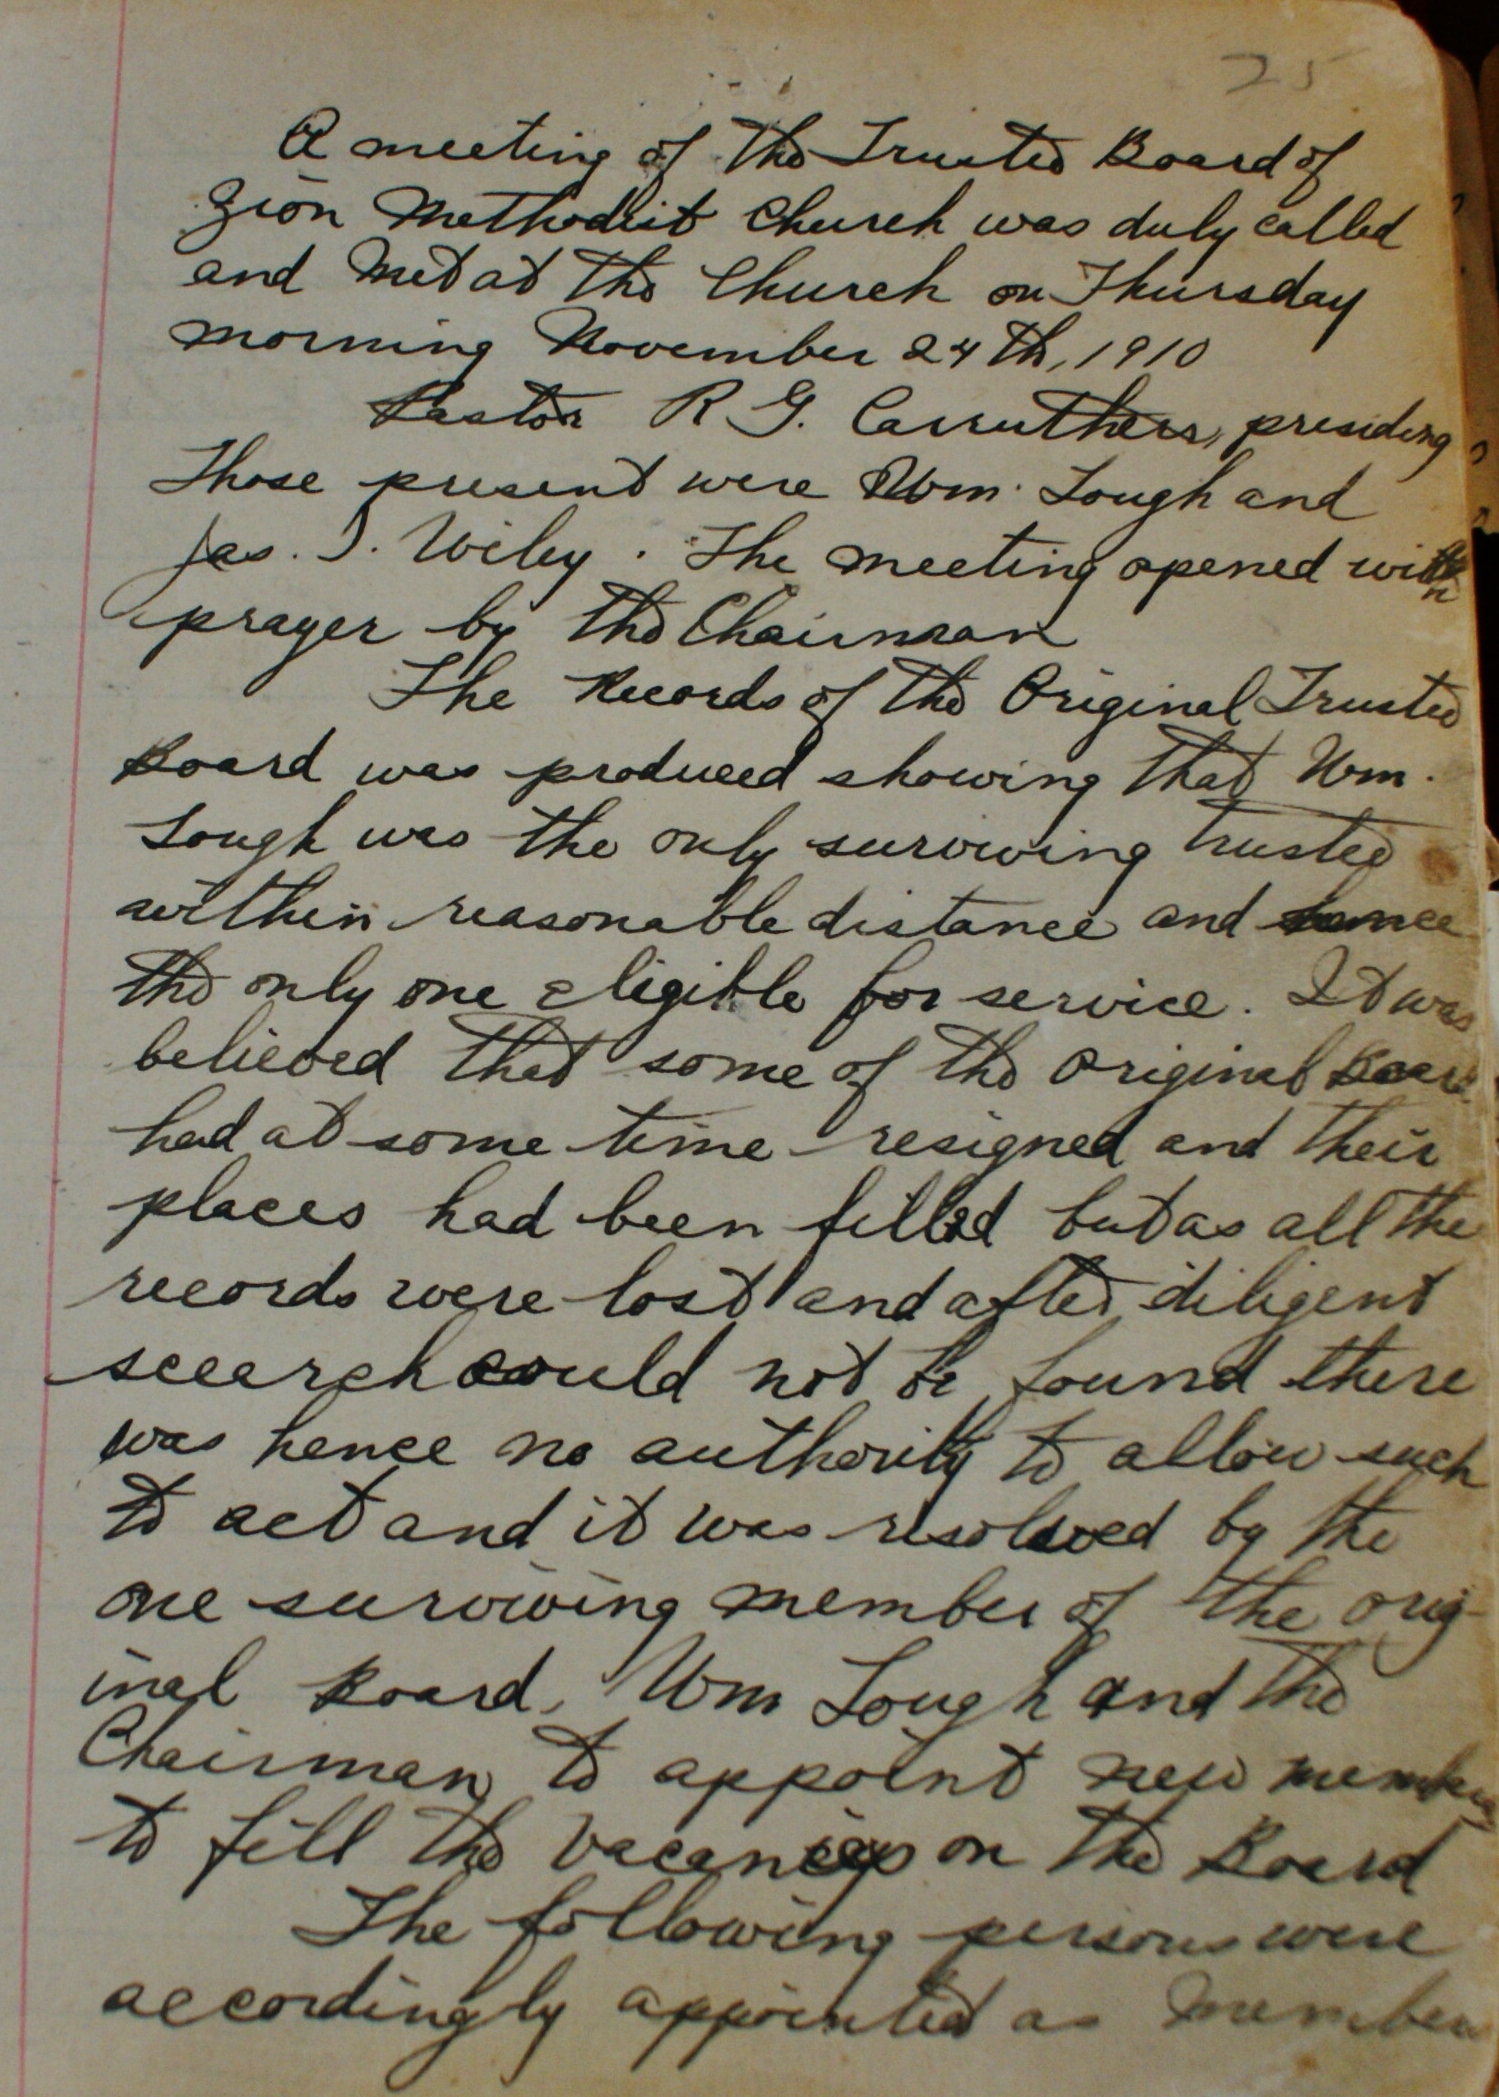 25
A meeting of the Trustee Board of
Zion Methodist Church was duly called
and met at the Church on Thursday
morning November 24th, 1910
Pastor R G. Carruthers, presiding
Those present were Wm. Lough and
Jas. T. Wiley. The meeting opened with
prayer by the Chairman
The Records of the Original Trustee
Board was produced showing that Wm.
Lough was the only surviving trustee
within reasonable distance and hence
the only one eligible for service. It was
believed that some of the original Board
had at some time resigned and their
places had been filled but as all the
records were lost and after diligent
search could not be found there
was hence no authority to allow such
to act and it was resolved by the
one surviving member of the orig-
inal Board, Wm Lough and the
Chairman to appoint new members
to fill the vacancies on the Board
The following persons were
accordingly appointed as members